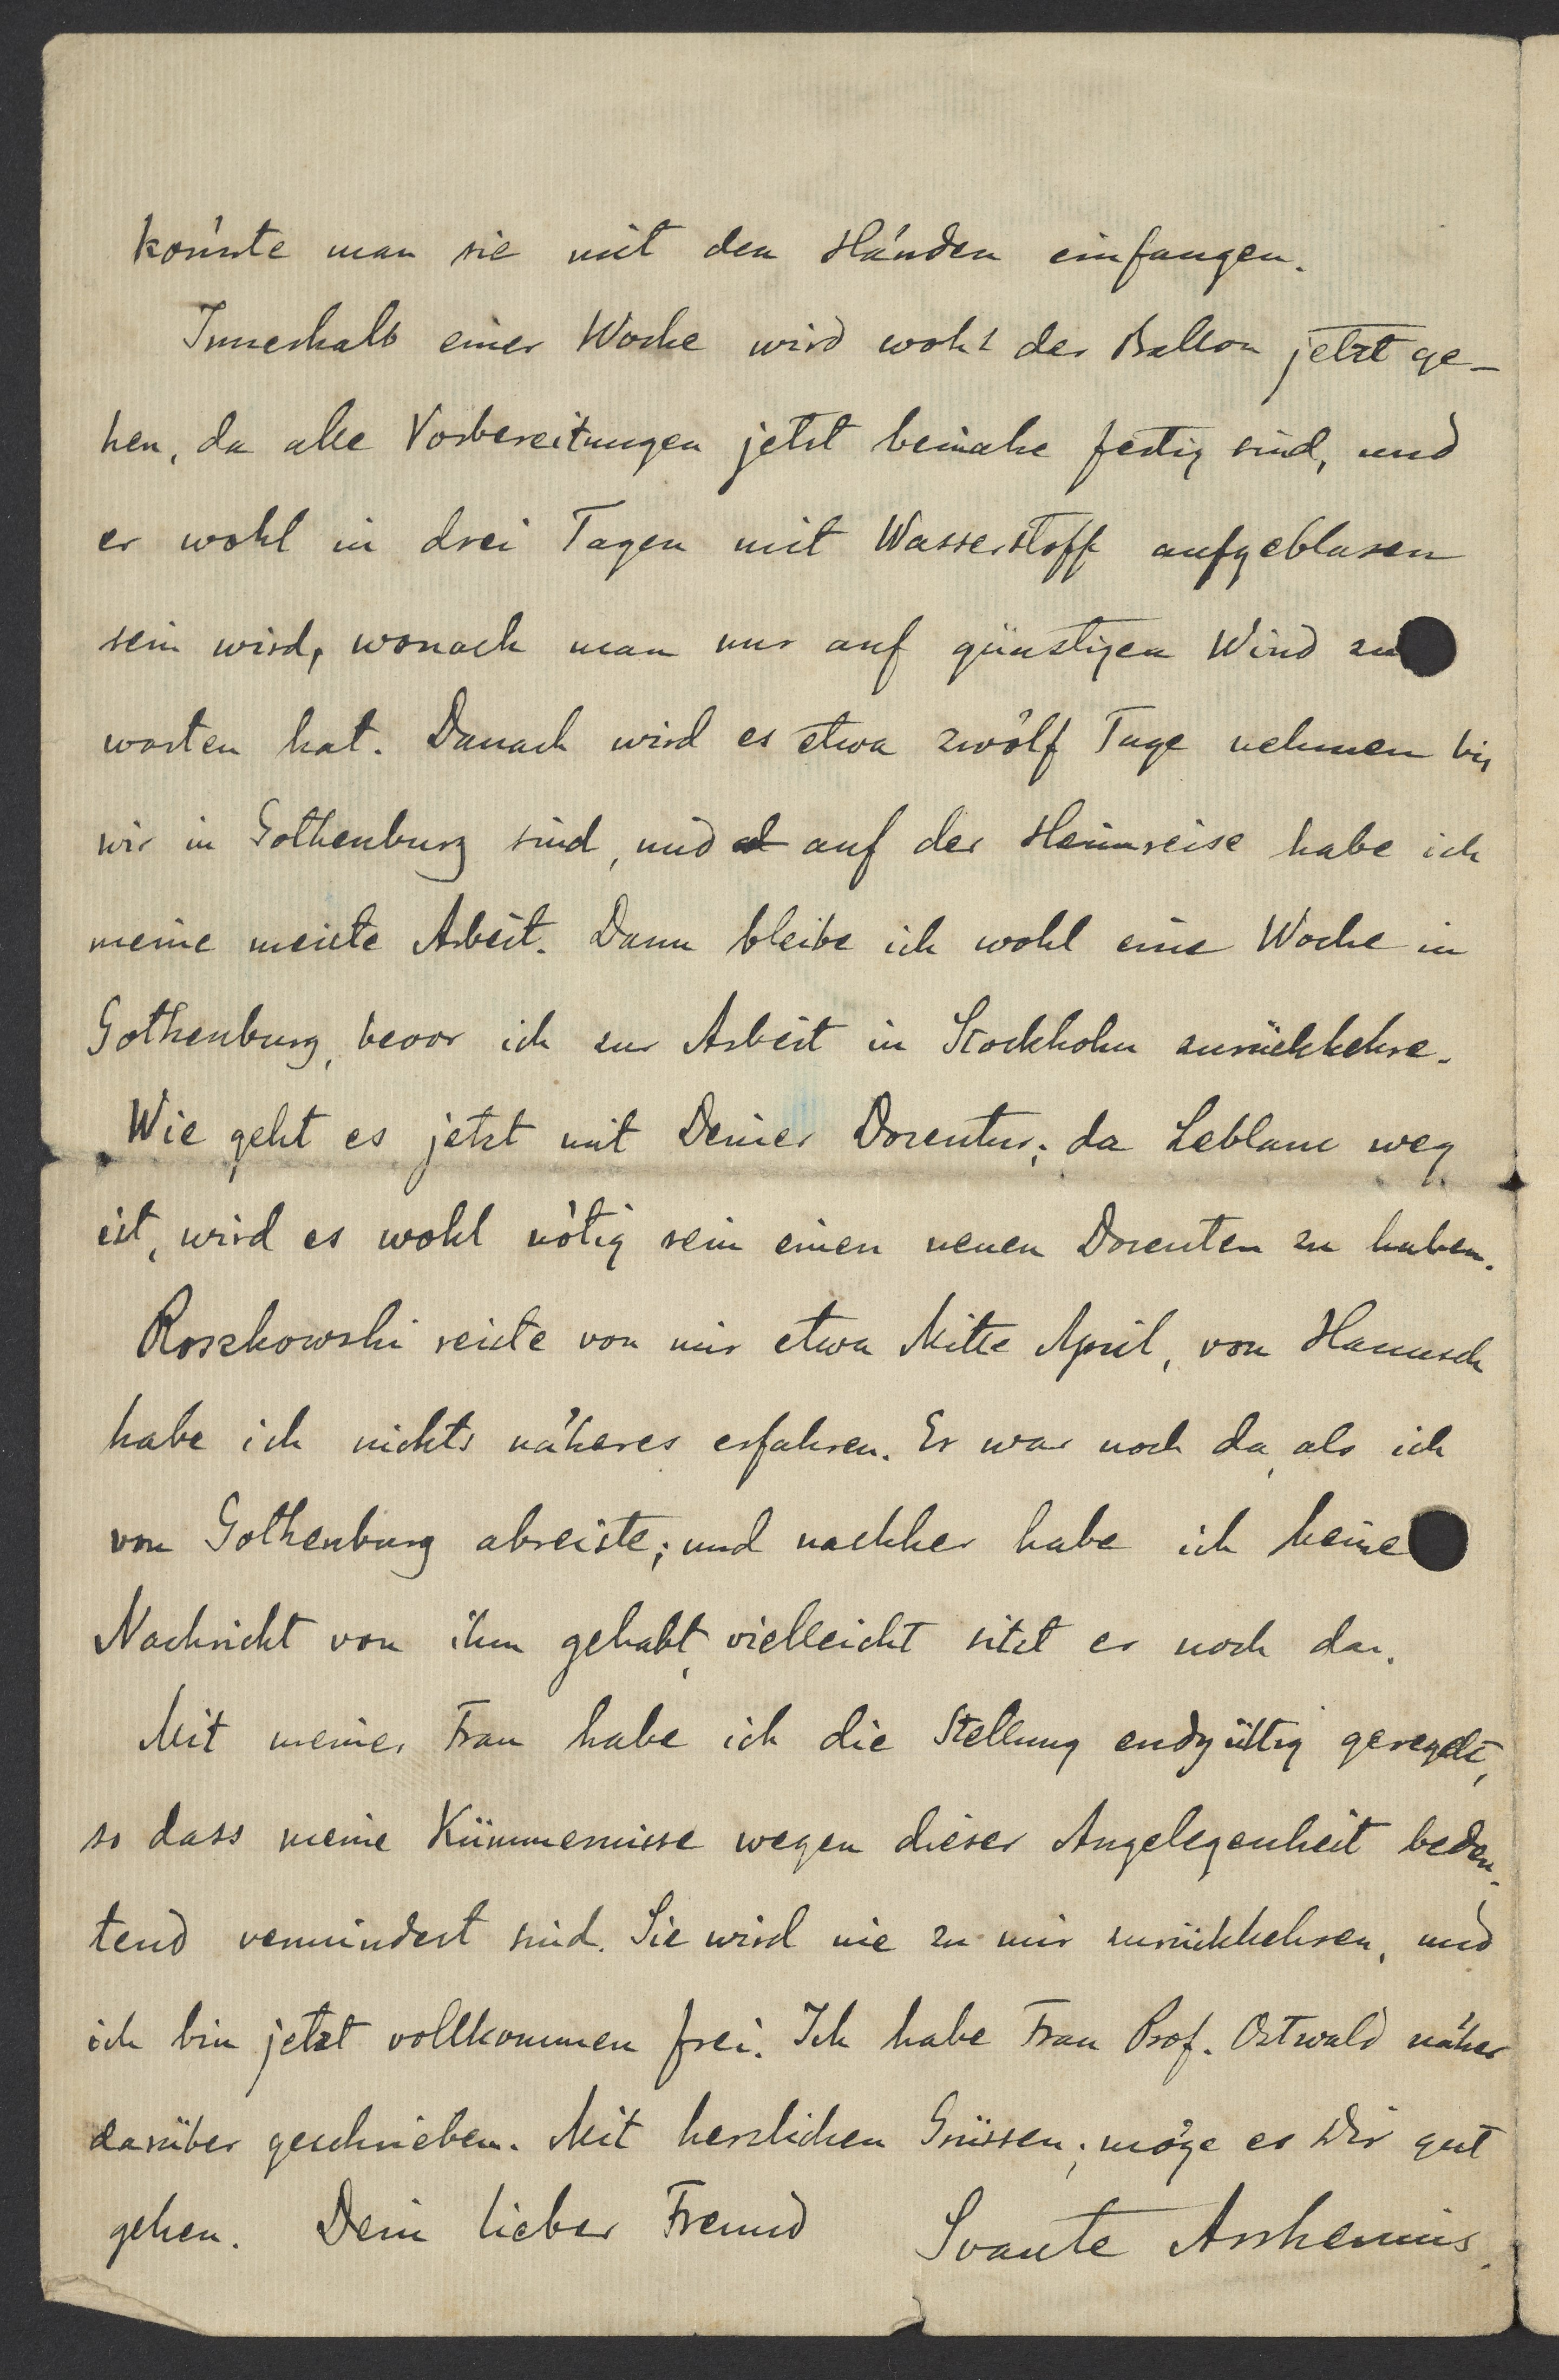 könnte man sie mit den Händen einfangen.
Innerhalb einer Woche wird wohl der Ballon jetzt ge-
hen, da alle Vorbereitungen jetzt beinahe fertig sind, und
er wohl in drei Tagen mit Wasserstoff aufgeblasen
sein wird, wonach man nur auf günstigen Wind zu
warten hat. Danach wird es etwa zwölf Tage nehmen bis
wir in Gothenburg sind, und auf der Heimreise habe ich
meine meiste Arbeit. Dann bleibe ich wohl eine Woche in
Gothenburg, bevor ich zur Arbeit in Stockholm zurückkehre.
Wie geht es jetzt mit Deiner Dozentur; da Leblanc weg
ist, wird es wohl nötig sein einen neuen Dozenten zu haben.
Roszkowski reiste von mir etwa Mitte April, von Hanusch
habe ich nichts näheres erfahren. Er war noch da, als ich
von Gothenburg abreiste; und nachher habe ich keine
Nachricht von ihm gehabt, vielleicht sitzt er noch da.
Mit meiner Frau habe ich die Stellung endgültig geregelt,
so dass meine Kümmernisse wegen dieser Angelegenheit bedeu-
tend vermindert sind. Sie wird nie zu mir zurückkehren, und
ich bin jetzt vollkommen frei. Ich habe Frau Prof. Ostwald näher
darüber geschrieben. Mit herzlichen Grüssen; möge es Dir gut
gehen. Dein lieber Freund Svante Arrhenius.